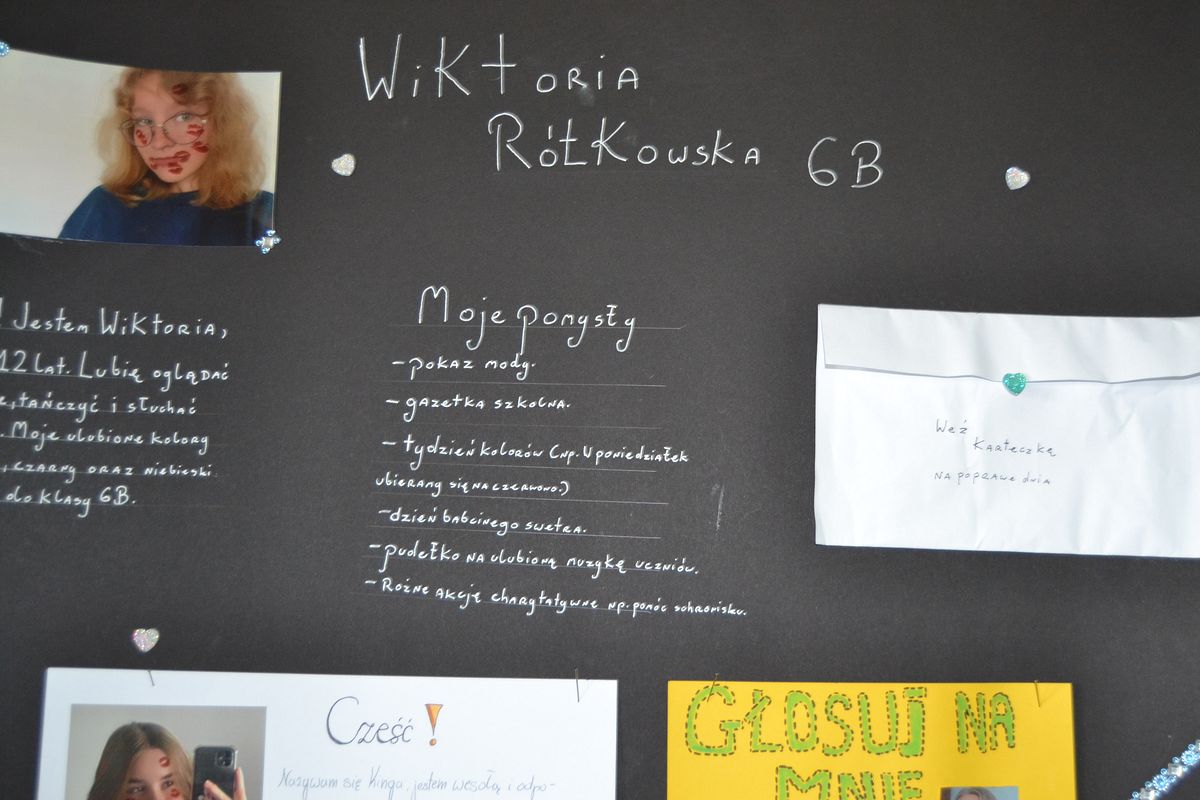 Wiktoria
Rółkowska 6B
! Jestem Wiktoria,
12 lat. Lubię oglądać
tańczyć i słuchać
. Moje ulubione kolory
, czarny oraz niebieski
do klasy 6B.
Moje pomysły
- pokaz mody.
- gazetka szkolna.
- tydzień kolorów (np. U poniedziałek
ubieramy się na czerwono.)
- dzień babcinego swetra.
- pudełko na ulubioną muzykę uczniów.
- Rożne akcję charytatywne np. pomóc schronisku.
Weź
karteczkę
na poprawe dnia
Cześć!
Nazywam się Kinga, jestem wesołą i odpo-
GŁOSUJ NA
MNIE